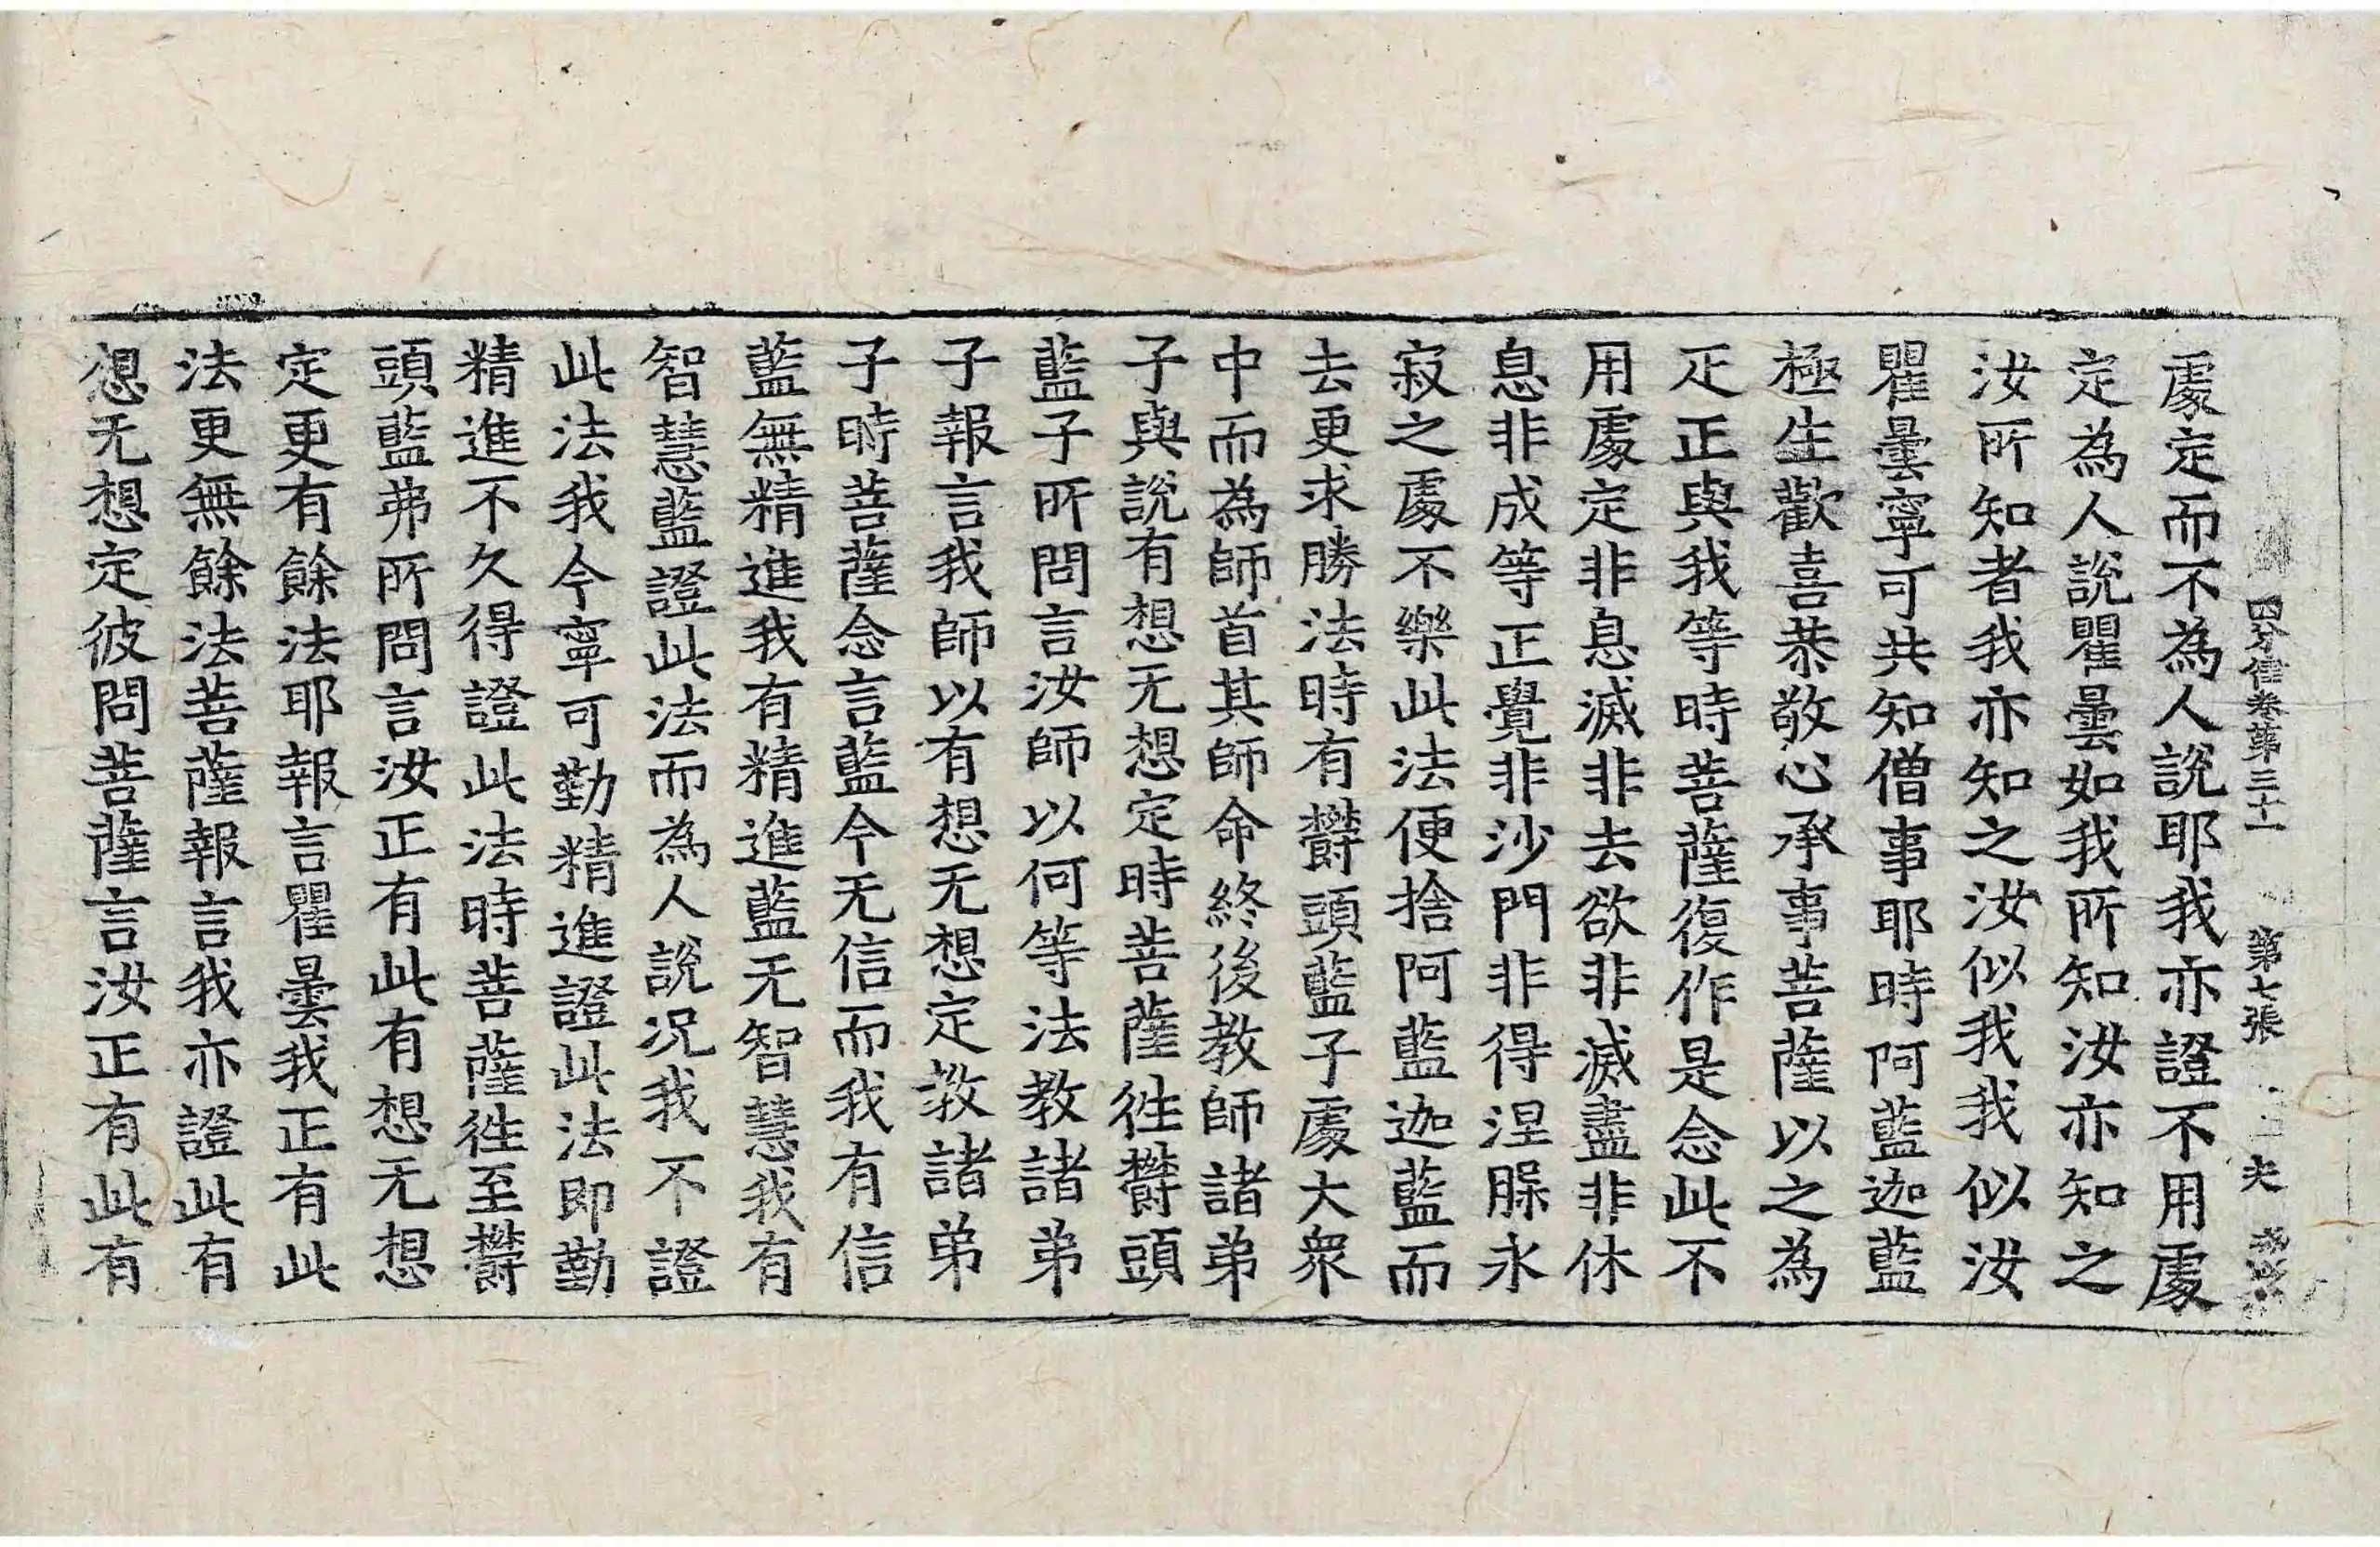 四分律卷第三十一 第七張 夫
處定而不為人說耶我亦證不用處
定為人說瞿曇如我所知汝亦知之
汝所知者我亦知之汝似我我似汝
瞿曇寧可共知僧事耶時阿藍迦藍
極生歡喜恭敬心承事菩薩以之為
疋正與我等時菩薩復作是念此不
用處定非息滅非去欲非滅盡非休
息非成等正覺非沙門非得涅槃永
寂之處不樂此法便捨阿藍迦藍而
去更求勝法時有欝頭藍子處大衆
中而為師首其師命終後教師諸弟
子與說有想无想定時菩薩徃欝頭
藍子所問言汝師以何等法教諸弟
子報言我師以有想无想定教諸弟
子時菩薩念言藍今无信而我有信
藍無精進我有精進藍无智慧我有
智慧藍證此法而為人說况我不證
此法我今寧可勤精進證此法即勤
精進不久得證此法時菩薩徃至欝
頭藍弗所問言汝正有此有想无想
定更有餘法耶報言瞿曇我正有此
法更無餘法菩薩報言我亦證此有
想无想定彼問菩薩言汝正有此有